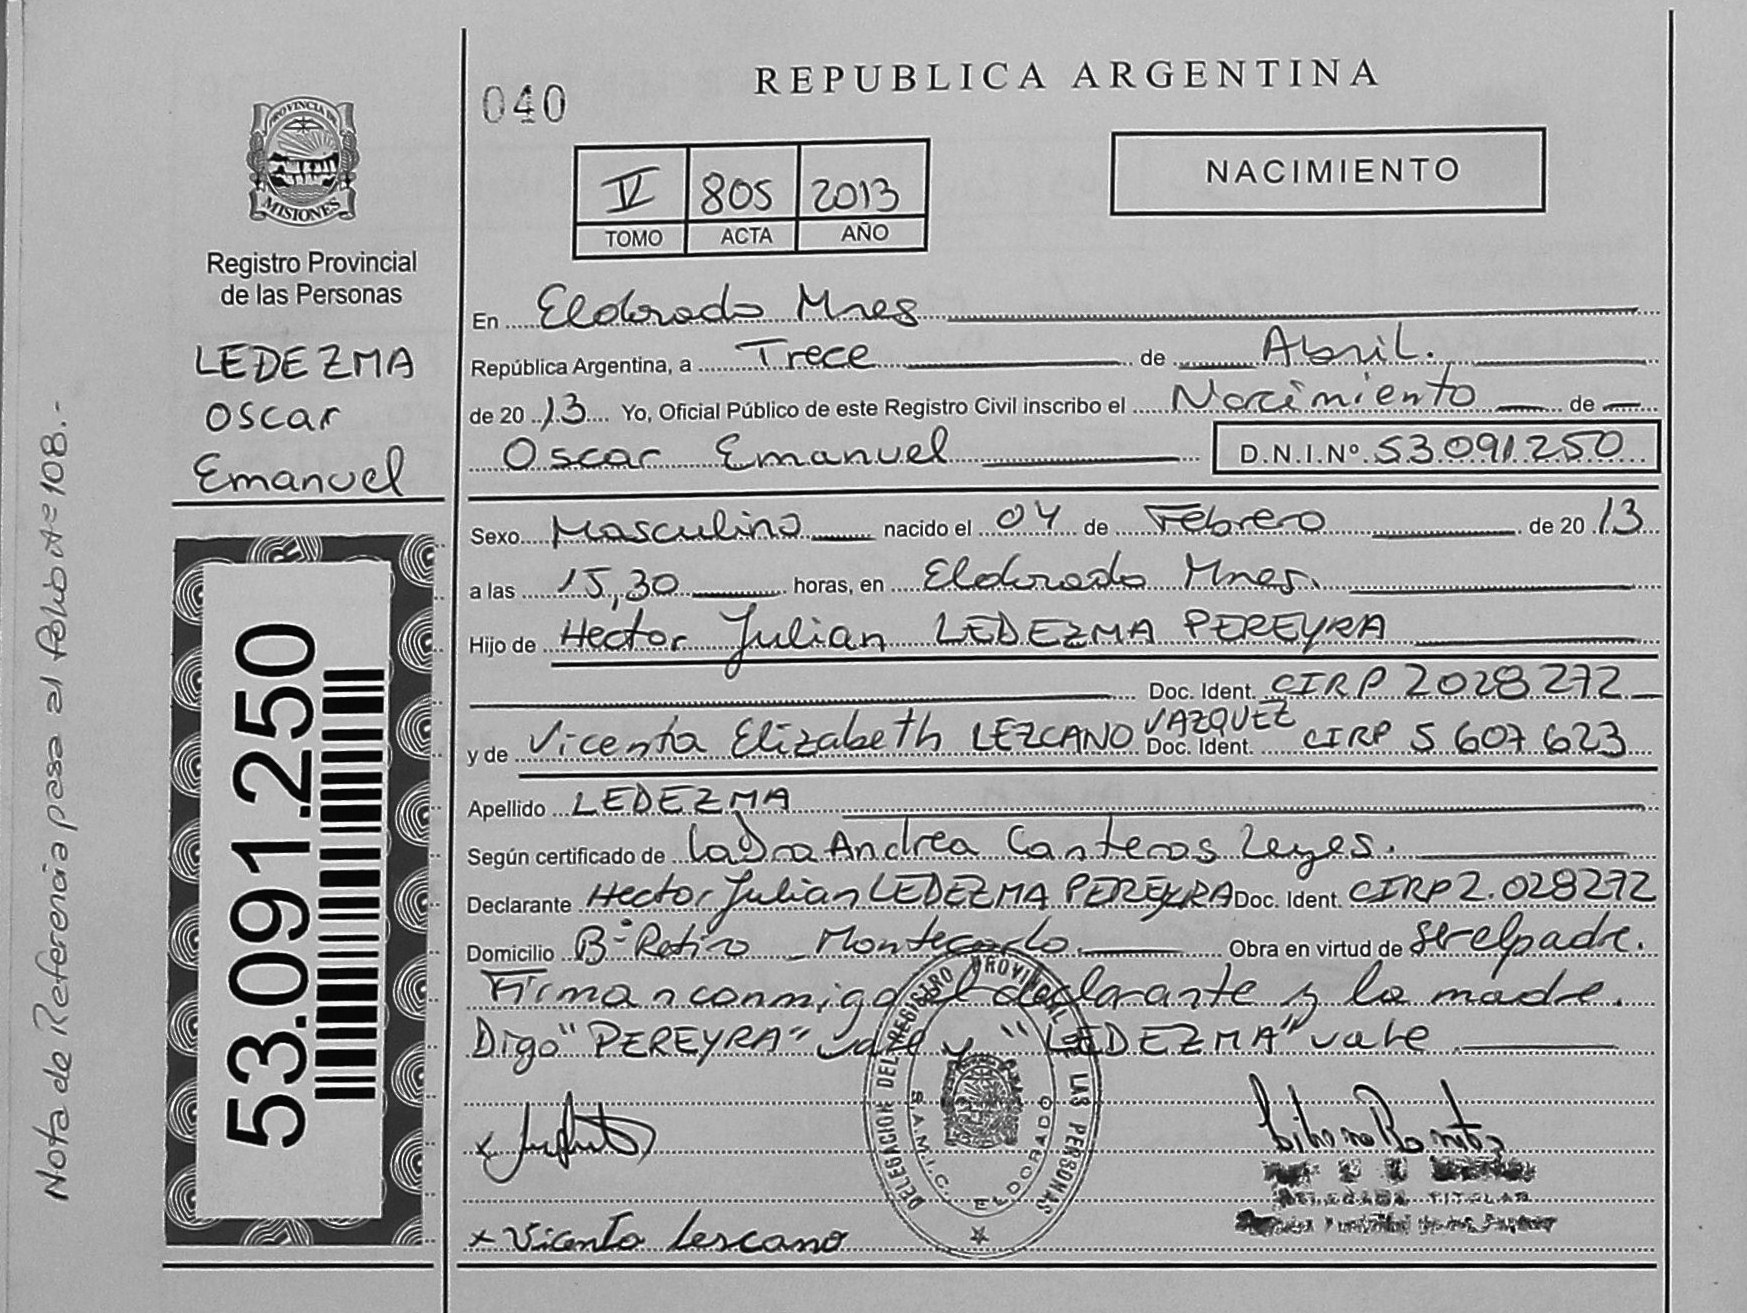 040
REPUBLICA ARGENTINA
NACIMIENTO
IV 805 2013
TOMO ACTA AÑO
PROVINCIA DE
MISIONES
Registro Provincial
de las Personas
LEDEZMA
Oscar
Emanuel
53.091.250
Nota de Referencia pasa al folio Nº 108.-
En Eldorado Mnes
República Argentina, a Trece de Abril.
de 20 13 Yo, Oficial Público de este Registro Civil inscribo el Nacimiento de
Oscar Emanuel D.N.I.Nº 53.091.250
Sexo Masculino nacido el 04 de Febrero de 20 13
a las 15,30 horas, en Eldorado Mnes.
Hijo de Hector Julian LEDEZMA PEREYRA
Doc. Ident. CIRP 2028272
y de Vicenta Elizabeth LEZCANO VAZQUEZ Doc. Ident. CIRP 5 607 623
Apellido LEDEZMA
Según certificado de la Dra Andrea Canteros Leyes.
Declarante Hector Julian LEDEZMA PEREYRA Doc. Ident. CIRP 2.028272
Domicilio Bº Retiro - Montecarlo. Obra en virtud de ser el padre.
Firman conmigo el declarante y la madre.
Digo "PEREYRA" vale y "LEDEZMA" vale
DELEGACION DEL REGISTRO PROVINCIAL DE LAS PERSONAS
S.A.M.I.C. ELDORADO
DELEGADA TITULAR
x Vicenta Lescano